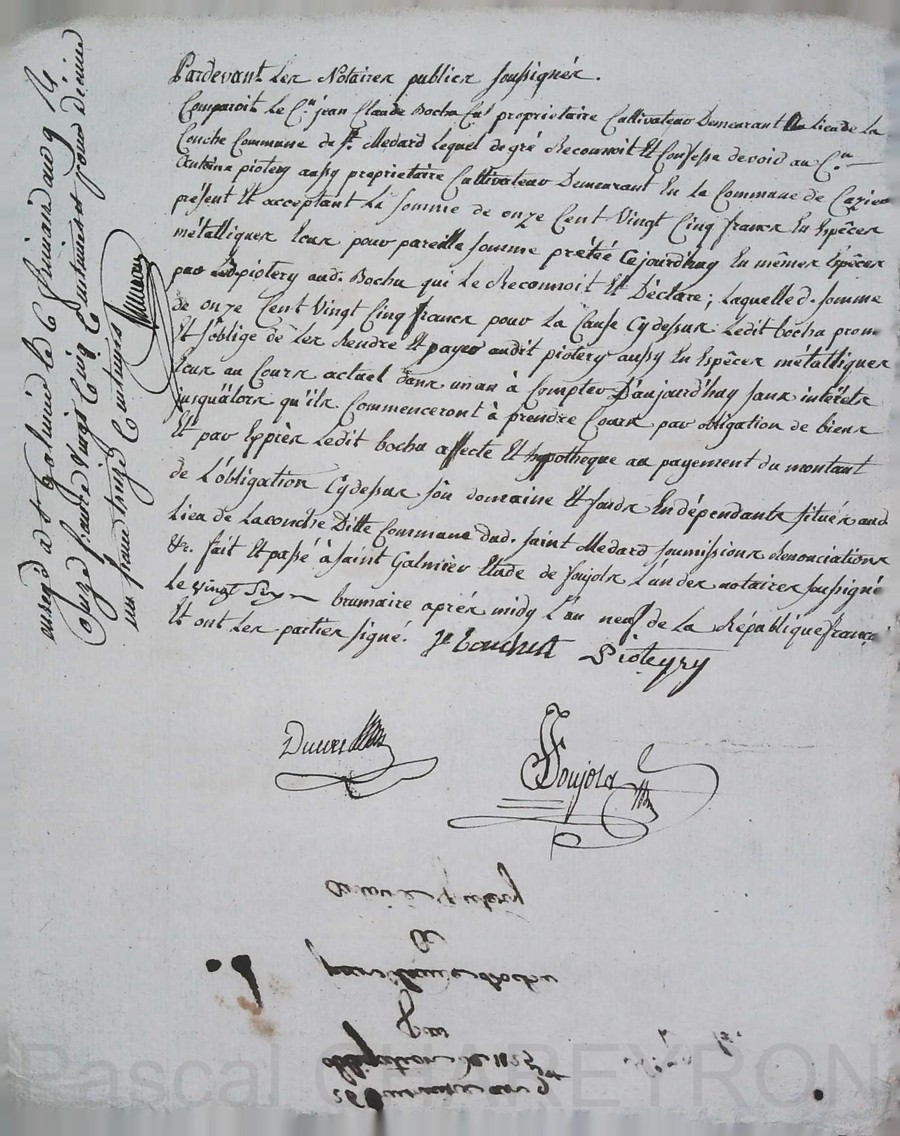 Pardevant Les Notaires publics soussignés.
Comparoit Le C.en jean Claude Bochu Cul proprietaire Cultivateur Demeurant Au Lieu de La
Conche Commune de St. Medard Lequel de gré Reconnoit Et Confesse devoir au C.en
Antoine piotery aussy proprietaire Cultivateur Demeurant En La Commune de
présent Et acceptant La somme de onze Cent Vingt Cinq francs En Espêces
métalliques Eour pour pareille somme prétée Cejourd'huy En mêmes Espêces
par Led. piotery aud. Bochu qui Le Reconnoit Et Déclare; Laquelle d. somme
de onze Cent Vingt Cinq francs pour La Cause Cydessus Ledit bochu prome
Et s'oblige de Les Rendre Et payer audit piotery aussy En Espêces métalliques
Eour au Cours actuel dans un an à Compter D'aujourd'huy sans intérêts
jusqu'alors qu'ils Commenceront à prendre Cours par obligation de biens
Et par Expres Ledit bochu affecte Et hypotheque au payement du montant
de L'obligation Cydessus son domaine Et fonds Endépendants situés aud
Lieu de Laconche Ditte Commune dud. saint Medard soumissions Renonciations
&c. fait Et passé à saint Galmier Etude de soujols L'un des notaires soussigné
Le vingt Six brumaire aprés midy L'an neuf de La République françai
Et ont Les parties signé. Je bouchut Pioteyry
Soujols
enreg.é a st galmier le 6 frimaire an 9 R
Onze francs vingt cinq Centimes pour dixime
un franc treize Centimes
26 Brumaire an 9
obligation de 1125
par
jean Claude Bochu
a
antoine piotery
Pascal CHAREYRON